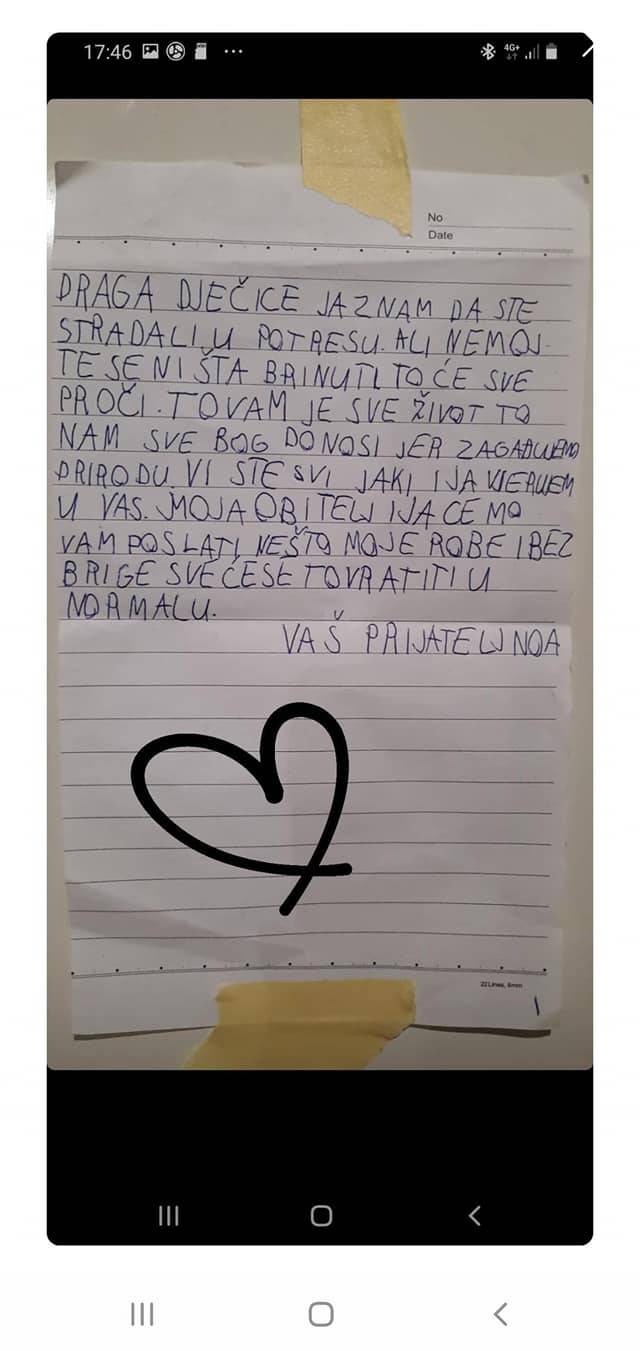 17:46
4G+
No
Date
DRAGA DJEČICE JA ZNAM DA STE
STRADALI U POTRESU. ALI NEMOJ-
TE SE NI ŠTA BRINUTI TO ĆE SVE
PROČI. TO VAM JE SVE ŽIVOT TO
NAM SVE BOG DONOSI JER ZAGAĐUJEMO
PRIRODU. VI STE SVI JAKI I JA VJERUJEM
U VAS. MOJA OBITELJ I JA CEMO
VAM POSLATI NEŠTO MOJE ROBE I BEZ
BRIGE SVE ĆE SE TO VRATITI U
NORMALU.
VAŠ PRIJATELJ NOA
22 Lines, 6mm